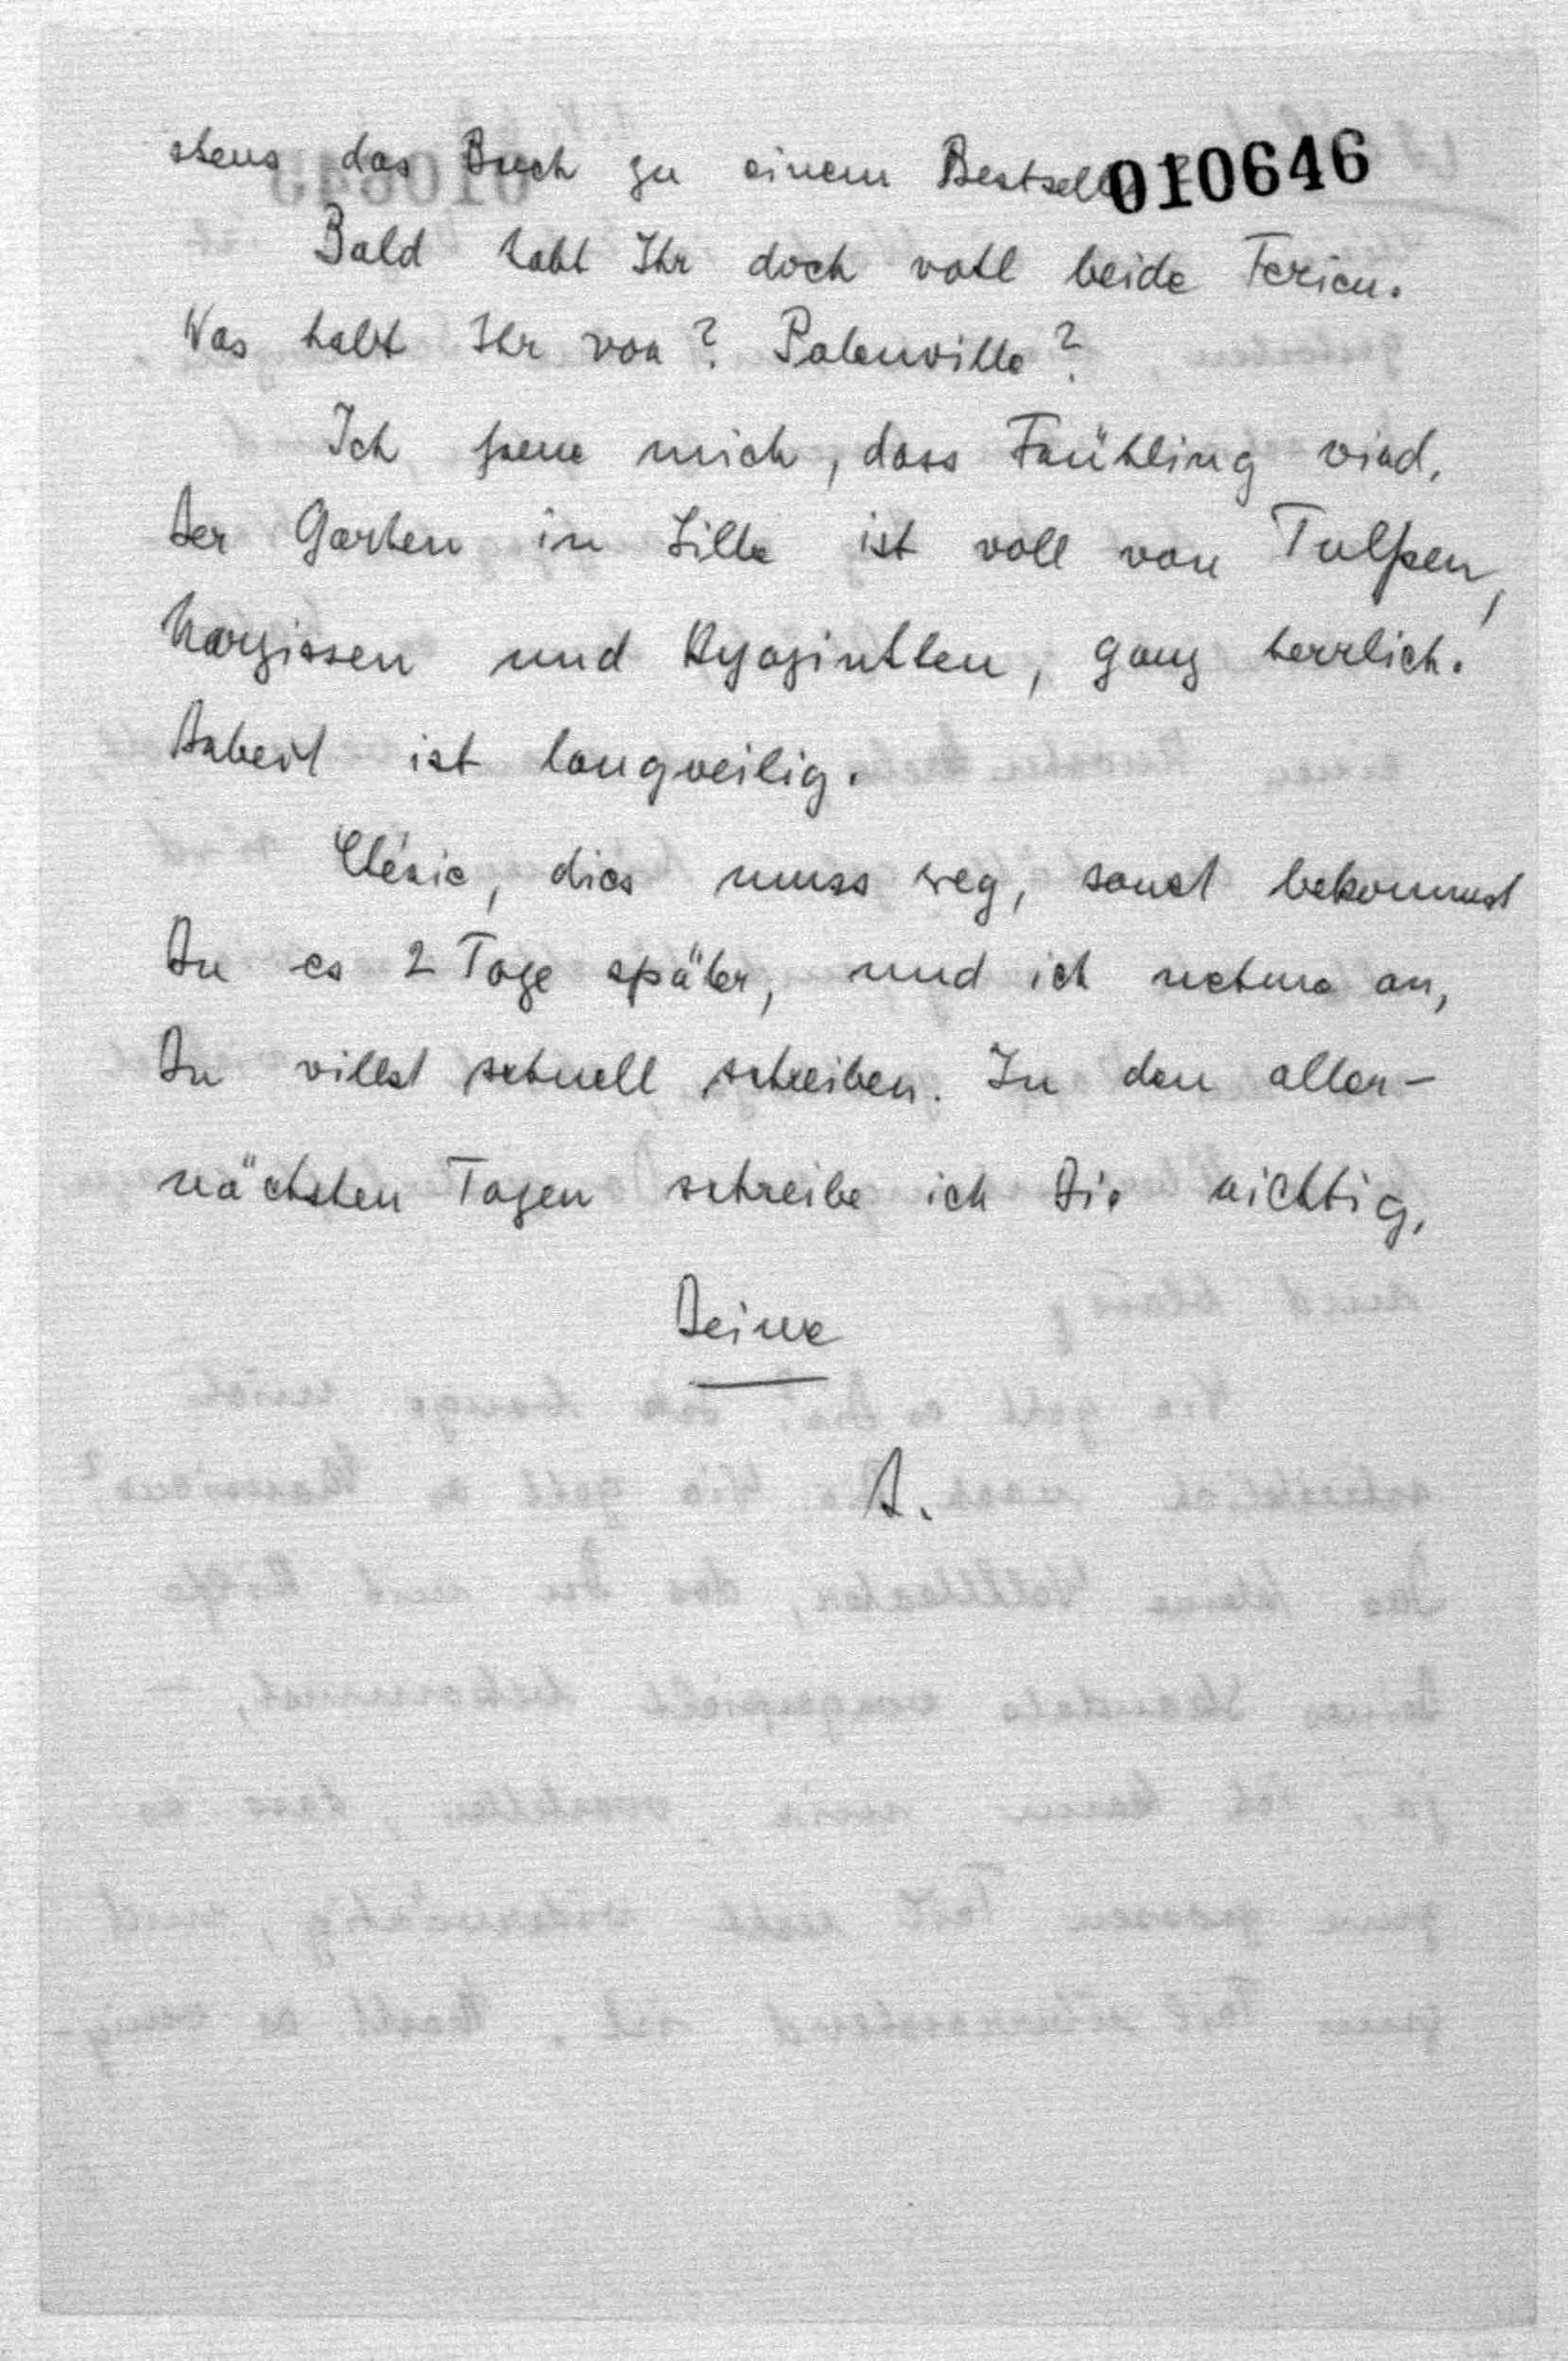 stens das Buch zu einem Bestseller? 010646
Bald habt Ihr doch wohl beide Ferien.
Was habt Ihr vor? Palenville?
Ich freue mich, dass Frühling wird.
Der Garten in Lilla ist voll von Tulpen,
Narzissen und Hyazinthen, ganz herrlich.
Arbeit ist langweilig.
Chérie, dies muss weg, sonst bekommst
Du es 2 Tage später, und ich nehme an,
Du willst schnell schreiben. In den aller-
nächsten Tagen schreibe ich Dir richtig,
Deine
A.